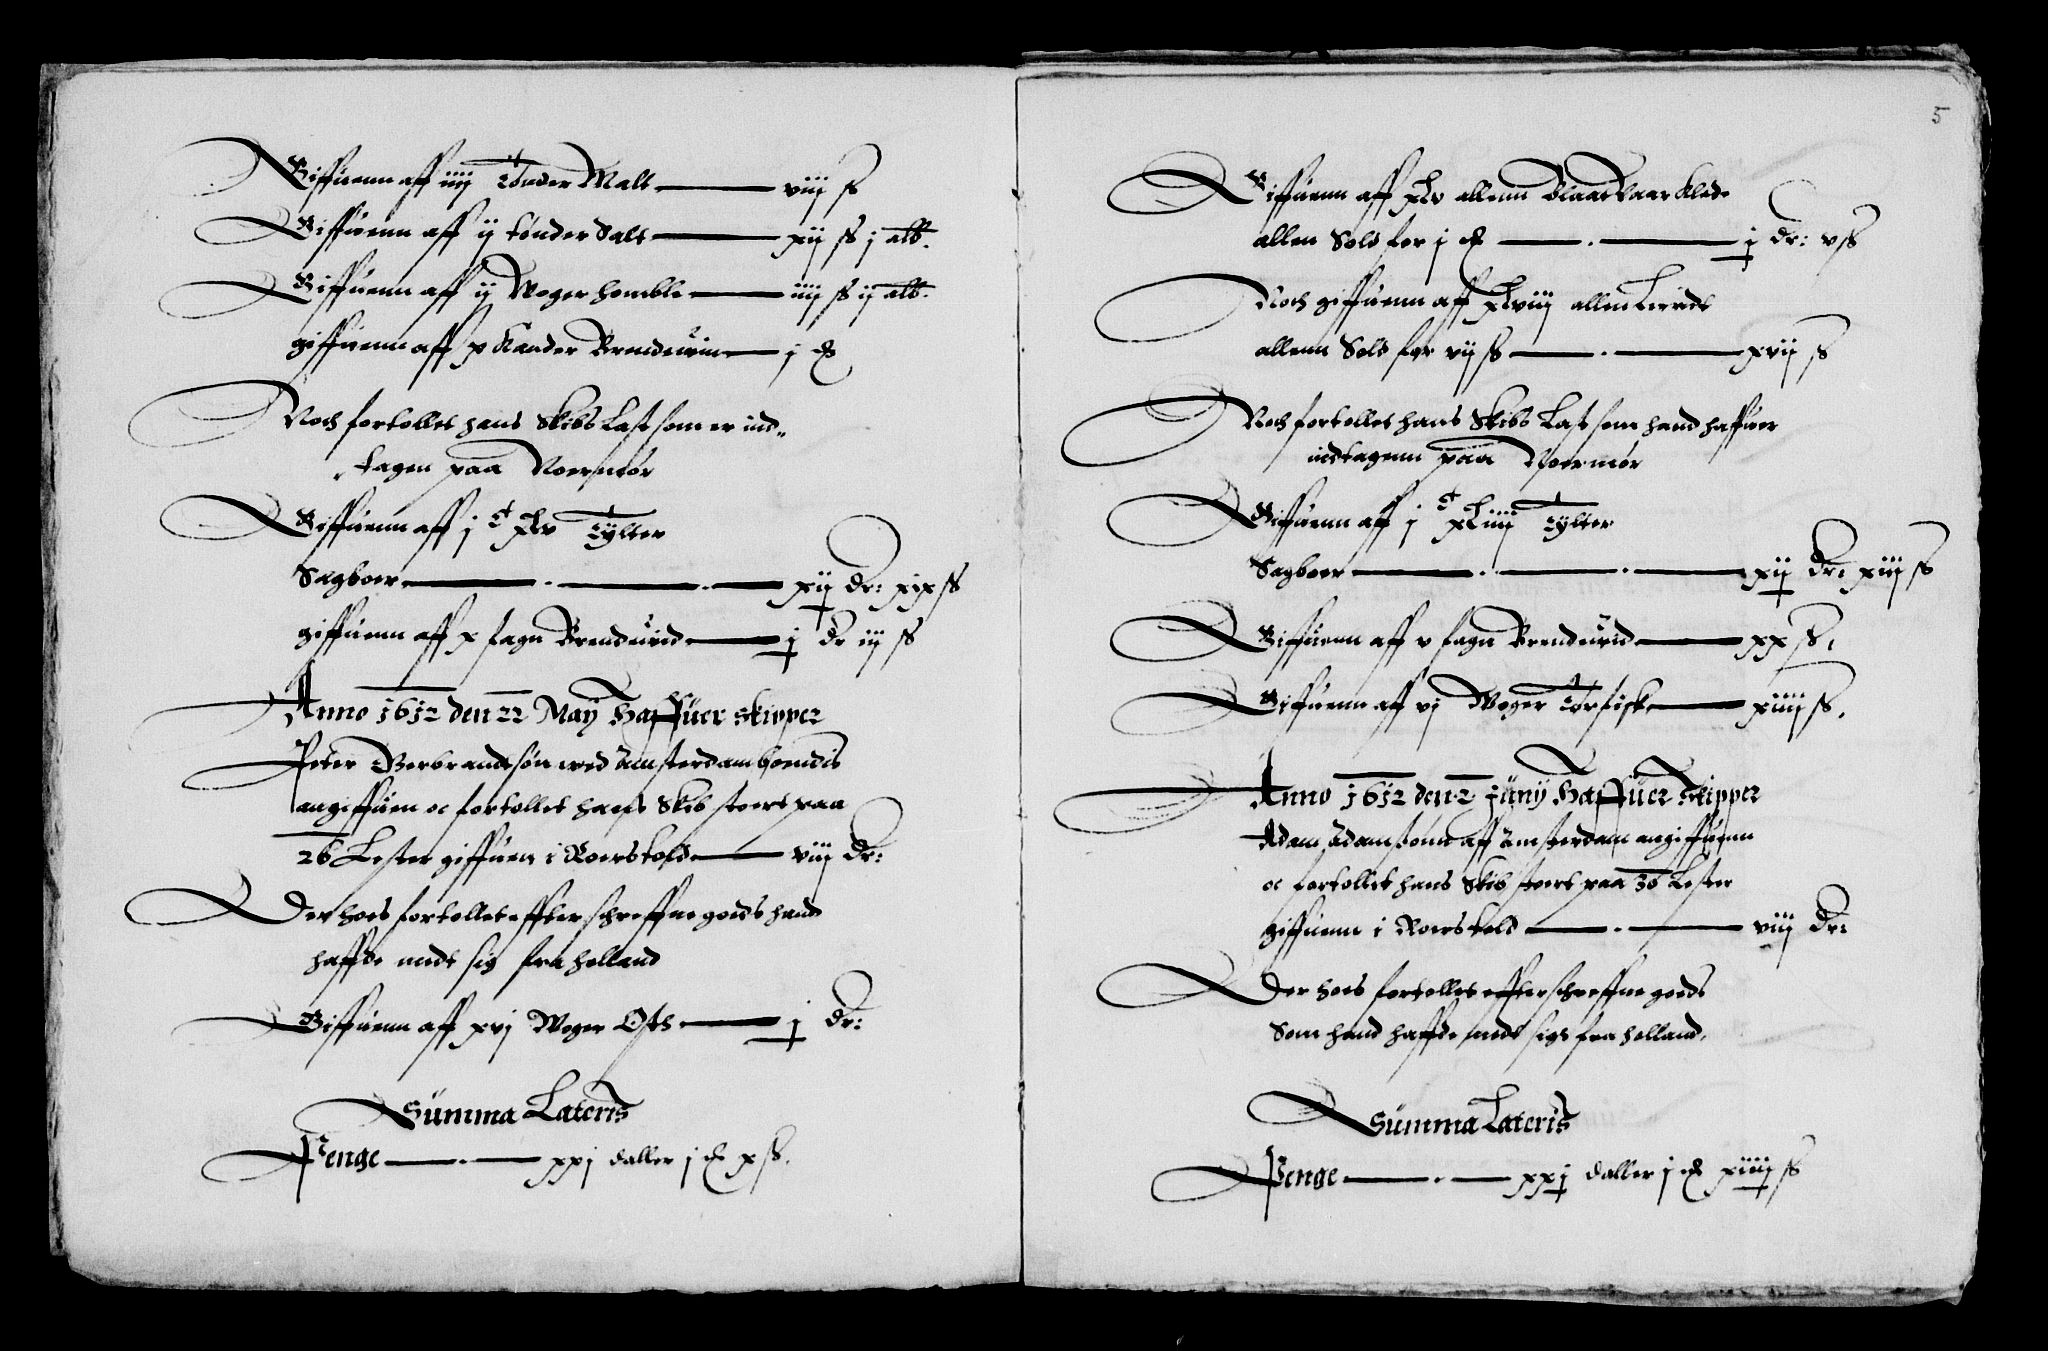 Giffuenn aff iiij Tønder Malt — viij ß
Giffuenn aff ij tønder Salt — xij ß j alb.
Giffuenn aff ij Woger homble — iiij ß ij alb.
giffuenn aff x Kander Brendeuin — j
Noch fortollet hans Skibs Last som er ind„
„tagen paa Noermør
Giffuenn aff j C xlv Tylter
Sagboer — . — . — xij dr: xix ß
giffuenn aff x fagn Brendeued — j dr iij ß
Anno 1612 den 22 Maÿ Haffuer skipper
Peter Verbrandtsøn wed Amsterdam boendis
angiffuen oc fortollet hans Skib stoert paa
26 Lester giffuen i Roerstold — viij dr:
Der hoes fortollet effterschreffne goeds hand
haffde medt sig fra Holland
Giffuenn aff xvj Woger Osth — j dr:
Summa Lateris
Penge — . — xxj daller j x ß.
5
Giffuenn aff xlv allenn Klede
allen Sold for j — . — j dr: v ß
Noch giffuenn aff xlviij allen Lerridt
allenn Sold for vij ß — . — xvij ß
Noch fortollet hans Skibs Last som hand haffuer
indtagenn paa Noermør
Giffuenn aff j C xliiij Tylter
Sagboer — . — . — xij dr: xiij ß
Giffuenn aff v fagn Brendeued — xx ß.
Giffuenn aff vj Woger Torfisk — xiiij ß.
Anno 1612 den 2 Junÿ Haffuer Skipper
Adam Adamsonn aff Amsterdam angiffuenn
oc fortollet hans Skib stoert paa 30 Lester
giffuenn i Roerstold — . — viij dr:
Der hoes fortollet effterschreffne goeds
Som hand haffde medt sigh fra Holland.
Summa Lateris
Penge — . — xxj daller j xiiij ß